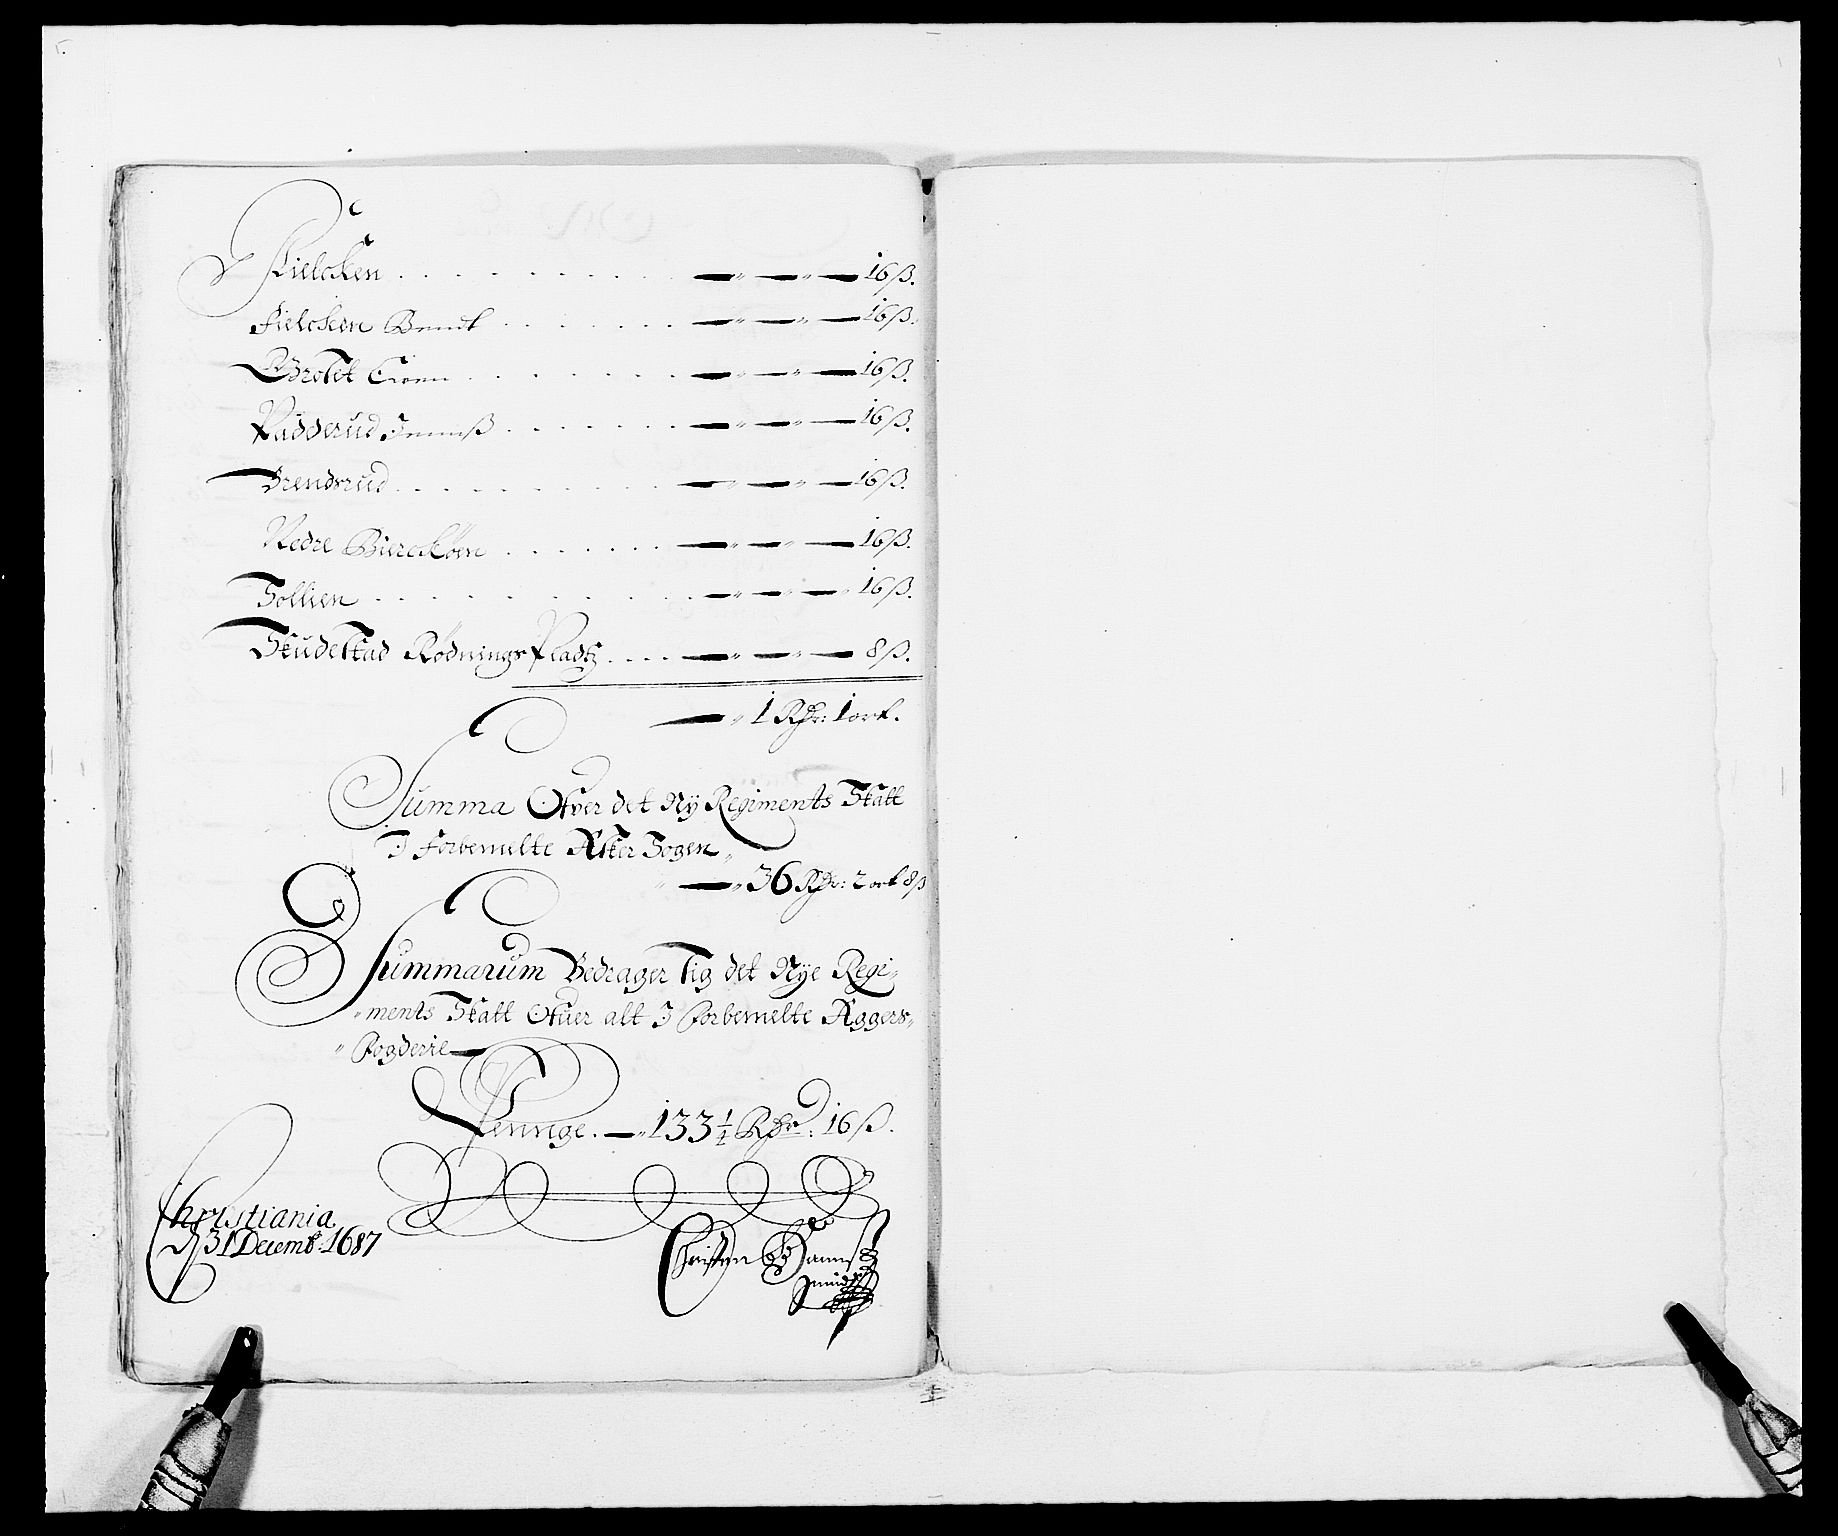 Fielcken . . . . . . . . . 16 ß.
Fielcken Bruuk . . . . . . . 16 ß.
Grostet Eien . . . . . . . 16 ß.
Padderud Jennß . . . . . . . 16 ß.
Brendsrud . . . . . . . . 16 ß.
Nedre Bierckøen . . . . . . 16 ß.
Sollien . . . . . . . . . 16 ß.
Skudestad Rødnings Pladtz . . . . 8 ß.
1 Rdr: 1 ort.
Summa Ofver det Ny Regiments Skatt
J Forbemelte Asker Sogen
36 Rdr: 2 ort 8 ß
Summarum Bedrager Sig det Nye Regi-
ments Skatt Ofuer alt J Forbemelte Aggers-
Fogderie
Penge. 133 1/4 Rdr: 16 ß.
Christiania
d 31 Decemb: 1687
Christen Hannß